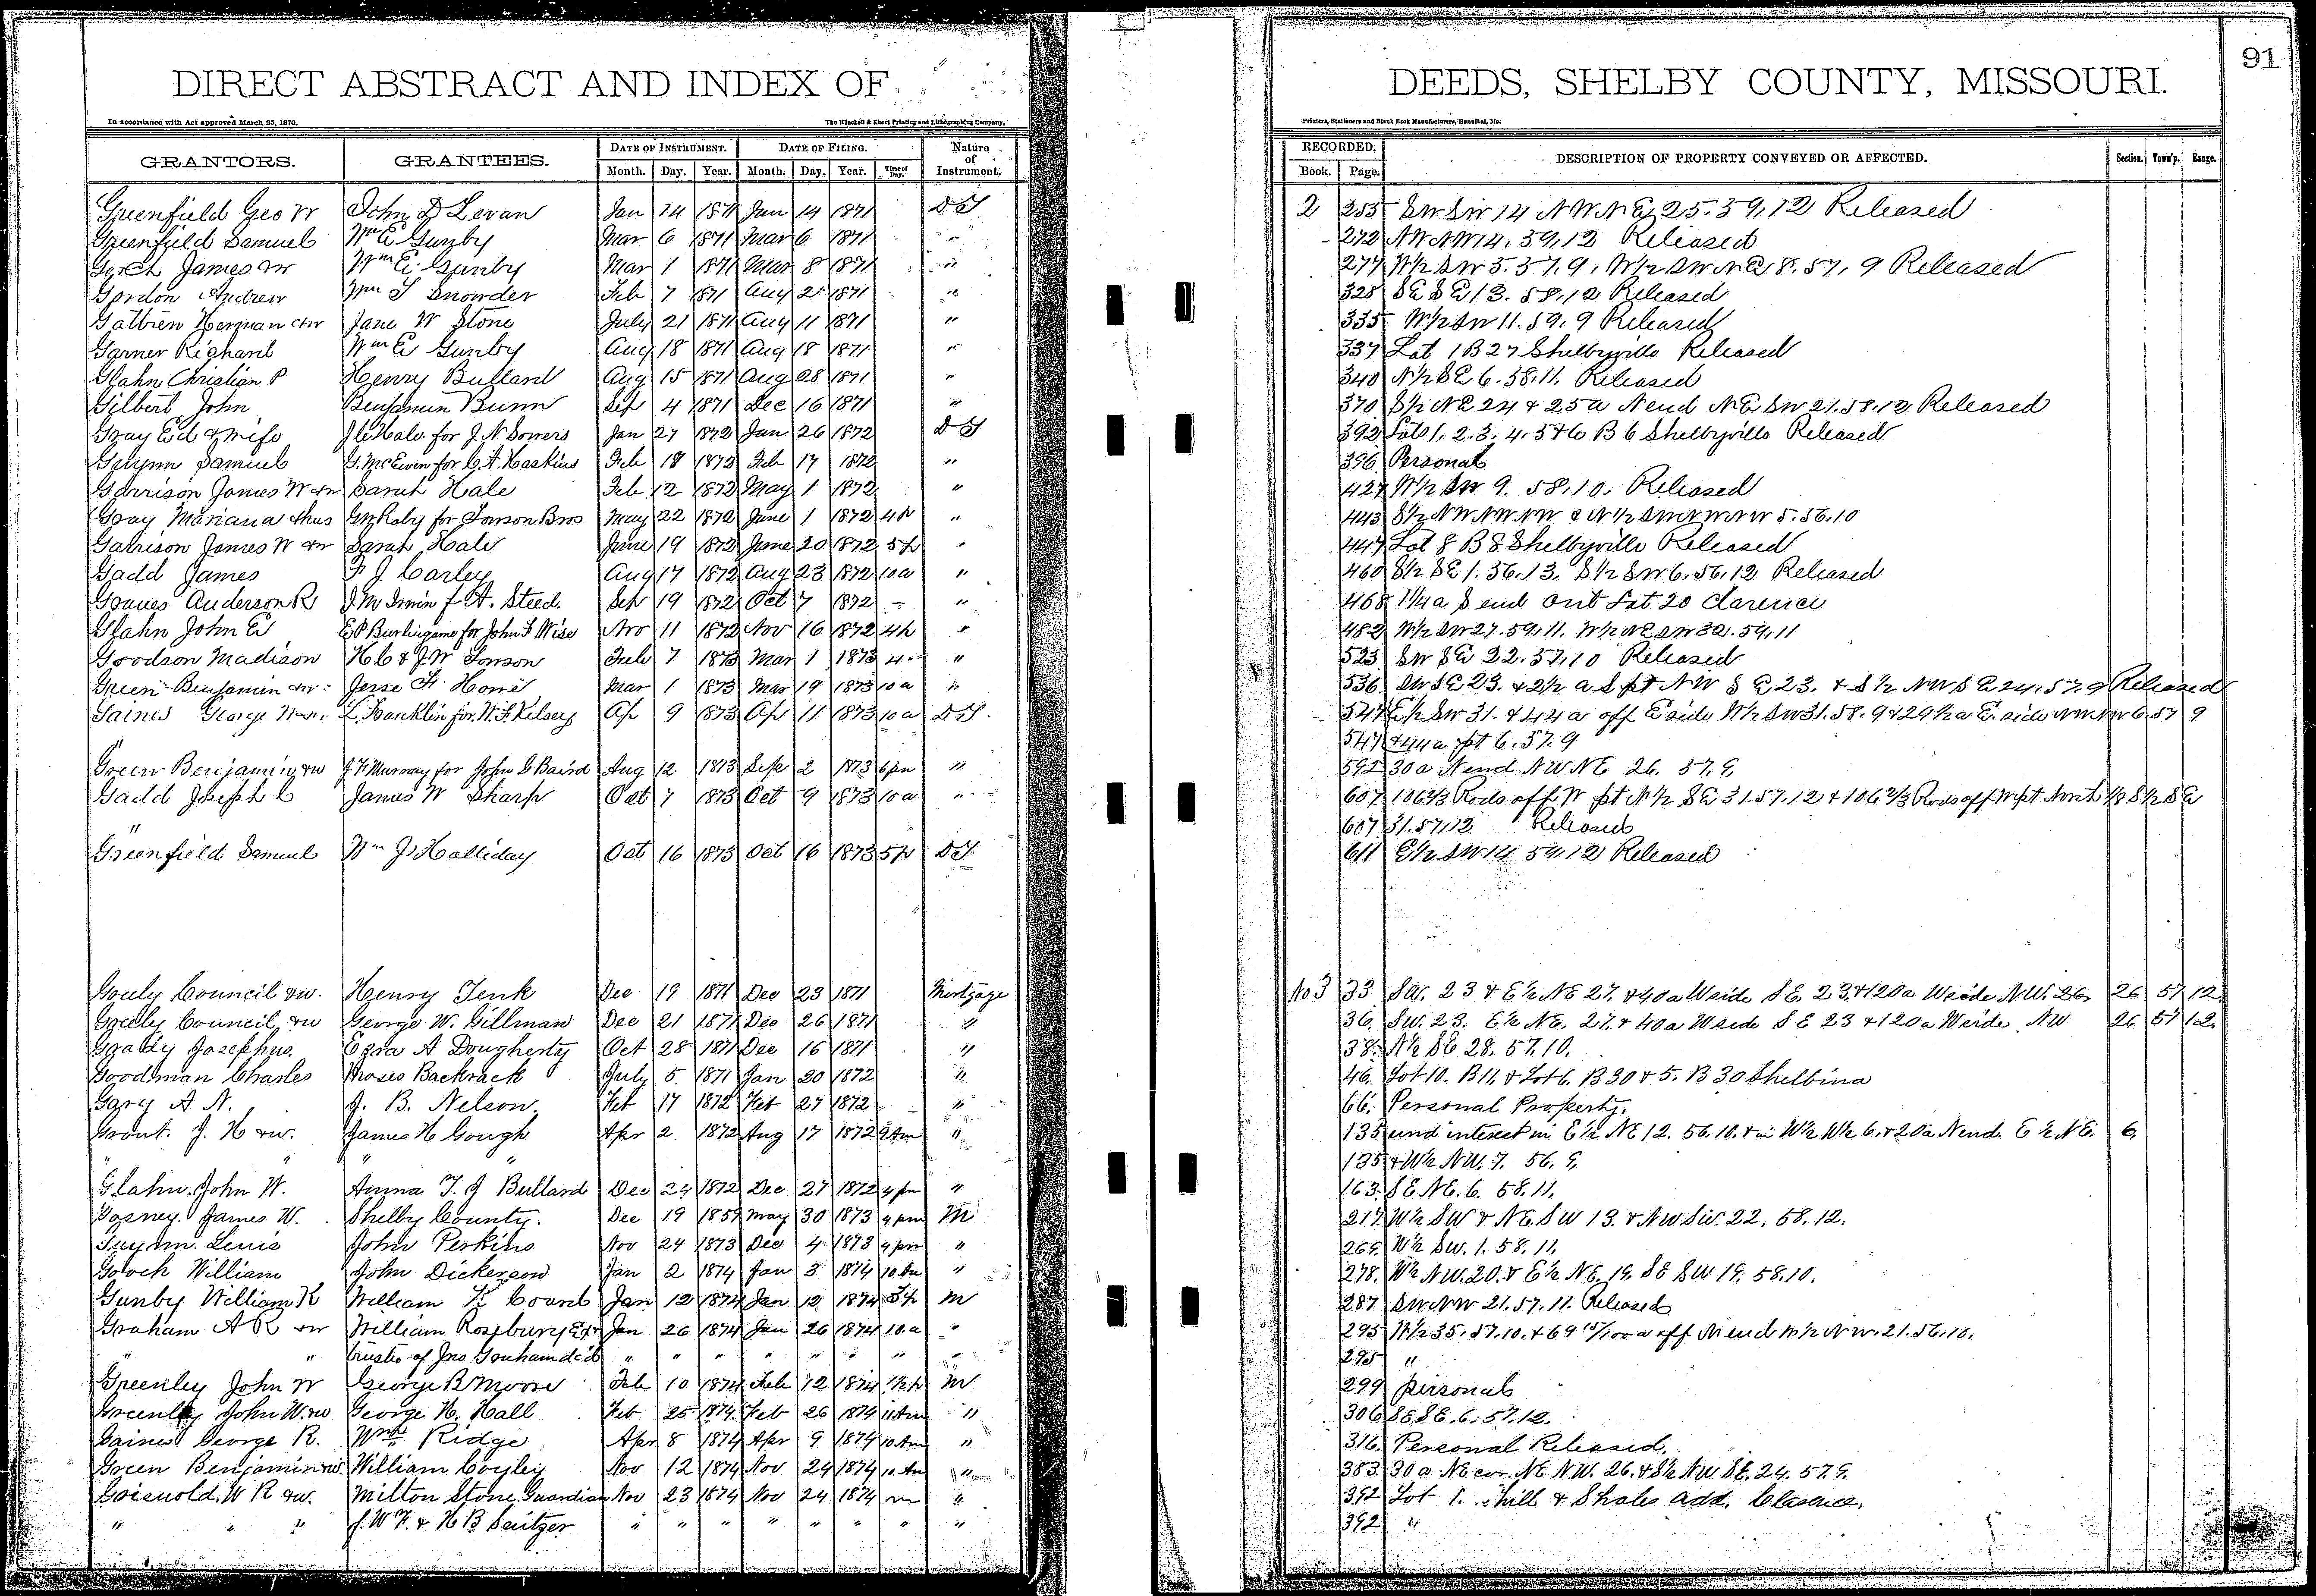 91
DIRECT ABSTRACT AND INDEX OF DEEDS, SHELBY COUNTY, MISSOURI.
In accordance with Act approved March 25, 1870. The Winchell & Ebert Printing and Lithographing Company, Printers, Stationers and Blank Book Manufacturers, Hannibal, Mo.
GRANTORS. GRANTEES. DATE OF INSTRUMENT. DATE OF FILING. Nature of Instrument. RECORDED. DESCRIPTION OF PROPERTY CONVEYED OR AFFECTED. Section. Town'p. Range.
Month. Day. Year. Month. Day. Year. Time of Day. Book. Page.
Greenfield Geo W John D Levan Jan 14 1871 Jan 14 1871 DT 2 255 SW SW 14 NW NE 25.59,12 Released
Greenfield Samuel Wm E Gunby Mar 6 1871 Mar 6 1871 " 272 NW NW 14, 59,12 Released
James &w Wm E. Gunby Mar 1 1871 Mar 8 1871 " 277 W½ SW 5.57,9, W½ SW NE 8,57,9 Released
Gordon Andrew Wm T Snowder Feb 7 1871 Aug 2 1871 " 328 SE SE 13.58,12 Released
Herman &w Jane W Stone July 21 1871 Aug 11 1871 " 335 W½ SW 11.59,9 Released
Garner Richard Wm E Gunby Aug 18 1871 Aug 18 1871 " 337 Lot 1 B 27 Shelbyville Released
Glahn Christian P Henry Bullard Aug 15 1871 Aug 28 1871 " 340 N½ SE 6.58,11. Released
Gilbert John Benjamin Bunn Sep 4 1871 Dec 16 1871 " 370 S½ NE 24 & 25a N end NE SW 21.58.12 Released
Gray Ed & wife J C Hale for J. N Sowers Jan 27 1872 Jan 26 1872 DT 392 Lots 1, 2, 3, 4, 5 & 6 B 6 Shelbyville Released
Samuel G. McEwen for C. A. Haskins Feb 18 1872 Feb 17 1872 " 396 Personal
Garrison James W &w Sarah Hale Feb 12 1872 May 1 1872 " 427 W½ SW 9. 58,10. Released
Gray Mariana & hus Raby for Towson Bros May 22 1872 June 1 1872 4P " 443 S½ NW NW NW & N½ SW NW NW 5.56,10
Garrison James W &w Sarah Hale June 19 1872 June 20 1872 5p " 447 Lot 8 B 8 Shelbyville Released
Gadd James F J Carley Aug 17 1872 Aug 23 1872 10a " 460 S½ SE 1.56,13, S½ SW 6,56,12 Released
Graves Anderson R J. M Irwin f A. Steed. Sep 19 1872 Oct 7 1872 – " 468 1¼a S end Out Lot 20 Clarence
Glahn John E E P Burlingame for John F Wise Nov 11 1872 Nov 16 1872 4p " 482 W½ SW 27.59,11. W½ NE SW 32.59,11
Goodson Madison H C & J W Towson Feb 7 1873 Mar 1 1873 4 " 523 SW SE 22.57,10 Released
Green Benjamin &w Jesse F. Howe Mar 1 1873 Mar 19 1873 10a " 536 SW SE 23. & 2½ a S pt NW SE 23. & S½ NW SE 24,57,9 Released
Gaines George W &w L. Franklin for W. F. Kelsey Ap 9 1873 Ap 11 1873 10a DT. 547 E½ SW 31. & 44a off E side W½ SW 31.58.9 & 29½a E. side NW NW 6.57 9
" 547 & 44a pt 6.57.9
Green Benjamin &w J F Murray for John S Baird Aug 12 1873 Sep 2 1873 6pm " 592 30a N end NW NE 26. 57.9,
Gadd Joseph C James W Sharp Oct 7 1873 Oct 9 1873 10a " 607 106⅔ Rods off W pt N½ SE 31.57.12 & 106⅔ Rods off W pt North ½ S½ SE
" 607 31.57,12. Released
Greenfield Samuel Wm J Holliday Oct 16 1873 Oct 16 1873 5p DT 611 E½ SW 14 59,12 Released
Council &w. Henry Tenk Dec 19 1871 Dec 23 1871 Mortgage No 3 33 SW. 23 & E½ NE 27. & 40a W side SE. 23. & 120a W side NW. 26, 26 57 12
Council &w George W. Gillman Dec 21 1871 Dec 26 1871 " 36. SW. 23. E½ NE. 27. & 40a W side SE 23 & 120a W side NW 26 57 12.
Grady Josephus. Ezra A Dougherty Oct 28 1871 Dec 16 1871 " 38. N½ SE 28. 57.10.
Goodman Charles Moses Backrack July 5. 1871 Jan 20 1872 " 46. Lot 10. B 11. & Lot 6. B 30 & 5. B 30 Shelbina
Gary A N. J. B. Nelson Feb 17 1872 Feb 27 1872 " 66. Personal Property.
Grant. J. H &w. James H Gough Apr 2 1872 Aug 17 1872 9Am " 135 und interest in E½ NE 12. 56.10. & in W½ W½ 6. & 20a N end. E½ NE. 6.
" " 135 & W½ NW. 7. 56. 9,
Glahn. John W. Anna T. J Bullard Dec 24 1872 Dec 27 1872 4pm " 163. SE NE. 6. 58.11.
Gosney. James W. Shelby County. Dec 19 1859 May 30 1873 4pm M 217. W½ SW & NE. SW 13. & NW SW. 22. 58. 12.
Lewis John Perkins Nov 24 1873 Dec 4 1873 4pm " 269. W½ SW. 1. 58. 11.
Gooch William John Dickerson Jan 2 1874 Jan 3 1874 10Am " 278. W½ NW. 20. & E½ NE. 19. SE SW 19. 58.10.
Gunby William K William Jan 12 1874 Jan 12 1874 3p M 287 SW NW 21.57.11. Released
Graham A R &w William Rosebury Exr Jan 26 1874 Jan 26 1874 10.a " 295 W½ 35.57.10. & 69 15/100 a off N end W½ NW. 21.56.10.
" " trustee of Jno Gonham dec'd " " " " " " " " 295 "
Greenley John W George B Moore Feb 10 1874 Feb 12 1874 M 299 personal
Greenley John W. &w George H. Hall Feb 25 1874 Feb 26 1874 11Am " 306 SE. SE. 6. 57.12.
Gaines George R. Wm Ridge Apr 8 1874 Apr 9 1874 10Am " 316. Personal Released.
Green Benjamin &w William Coyley Nov 12 1874 Nov 24 1874 10Am " 383. 30a NE cor. NE NW. 26. & S½ NW SE. 24. 57.9.
Griswold. W R &w. Milton Stone Guardian Nov 23 1874 Nov 24 1874 m " 392 Lot 1. hill & Shales add. Clarence.
" " " J. W F. & H B Seitzer " " " " " " " " 392 "